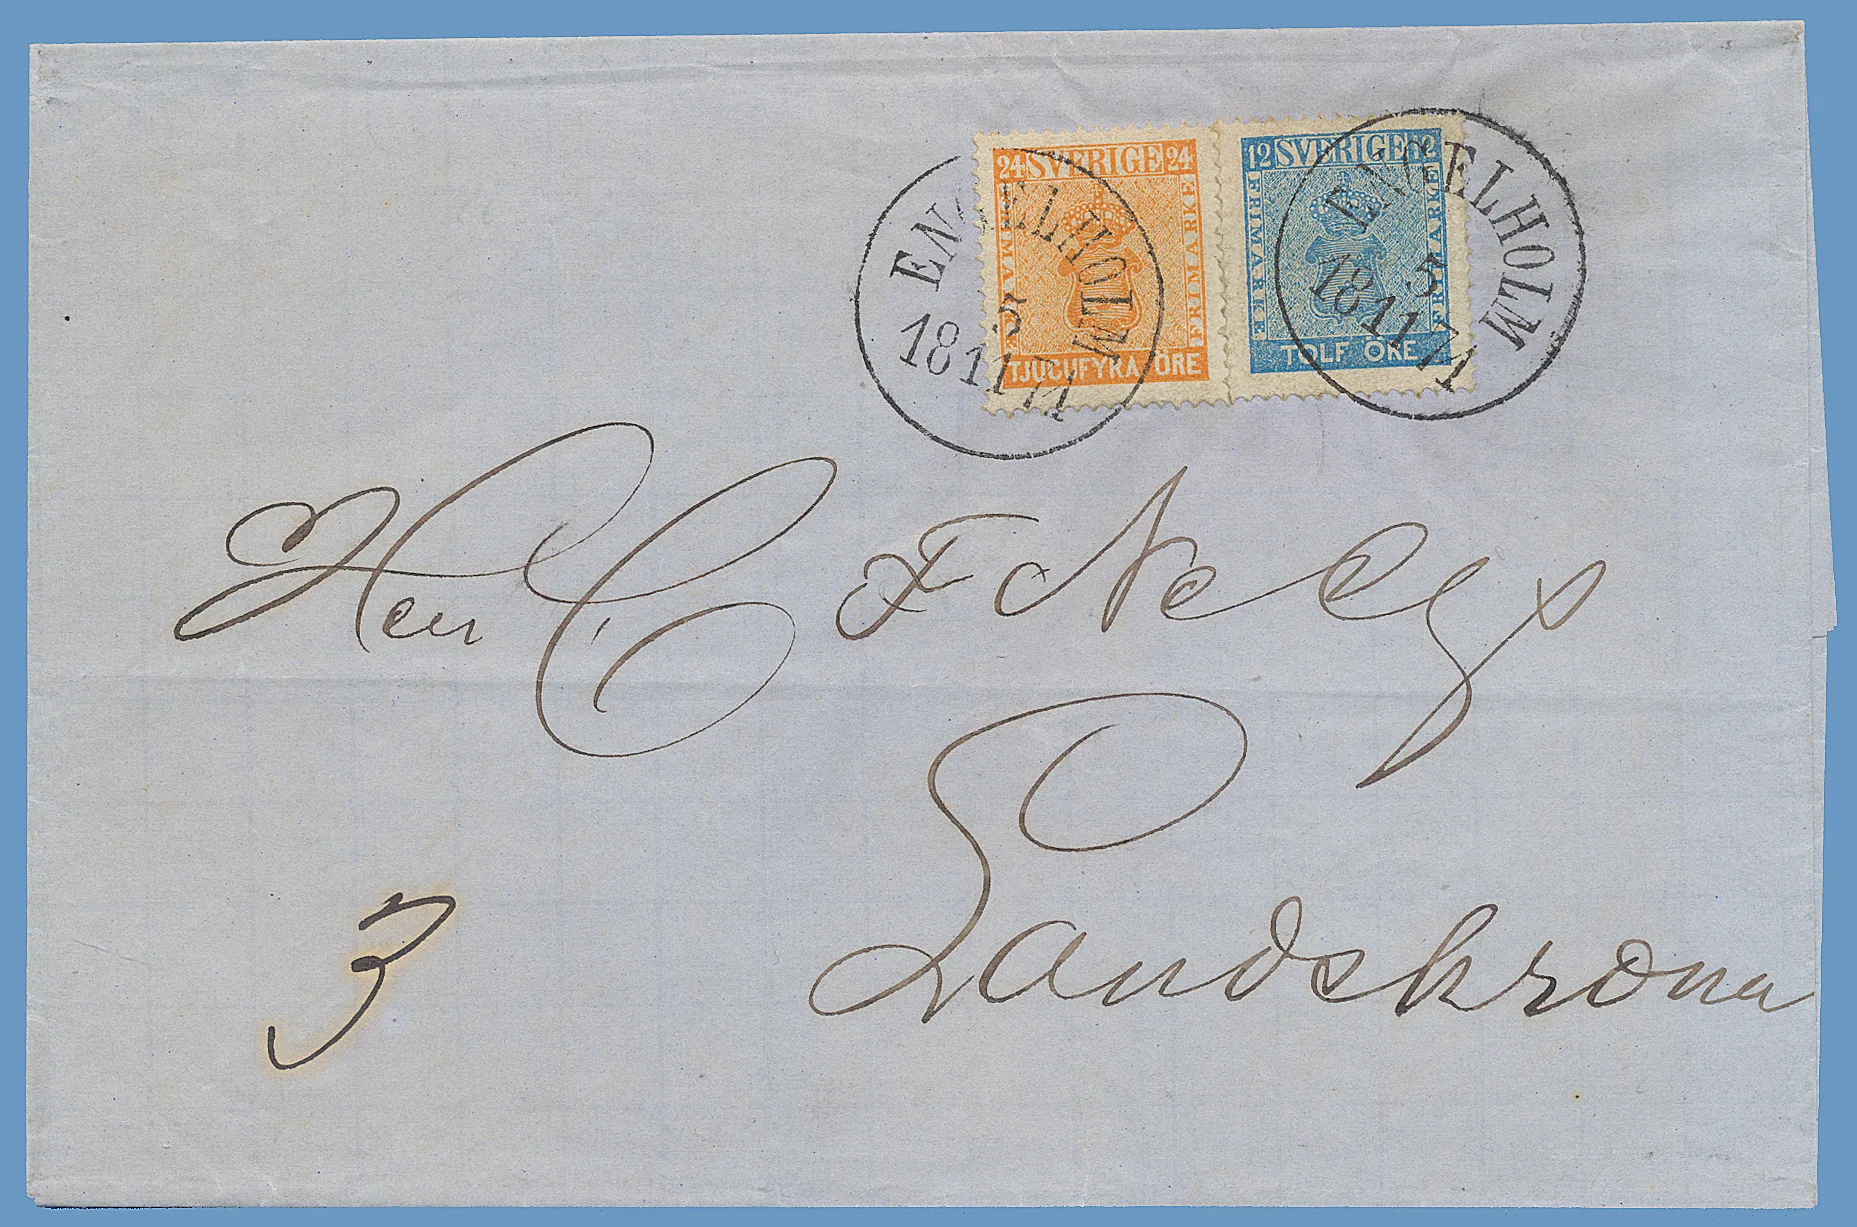 24 SVERIGE 24
FRIMARKE FRIMARKE
TJUGUFYRA ÖRE
12 SVERIGE 12
FRIMARKE FRIMARKE
TOLF ÖRE
ENGELHOLM
3
18 11 71
ENGELHOLM
3
18 11 71
Herr C F
Landskrona
3